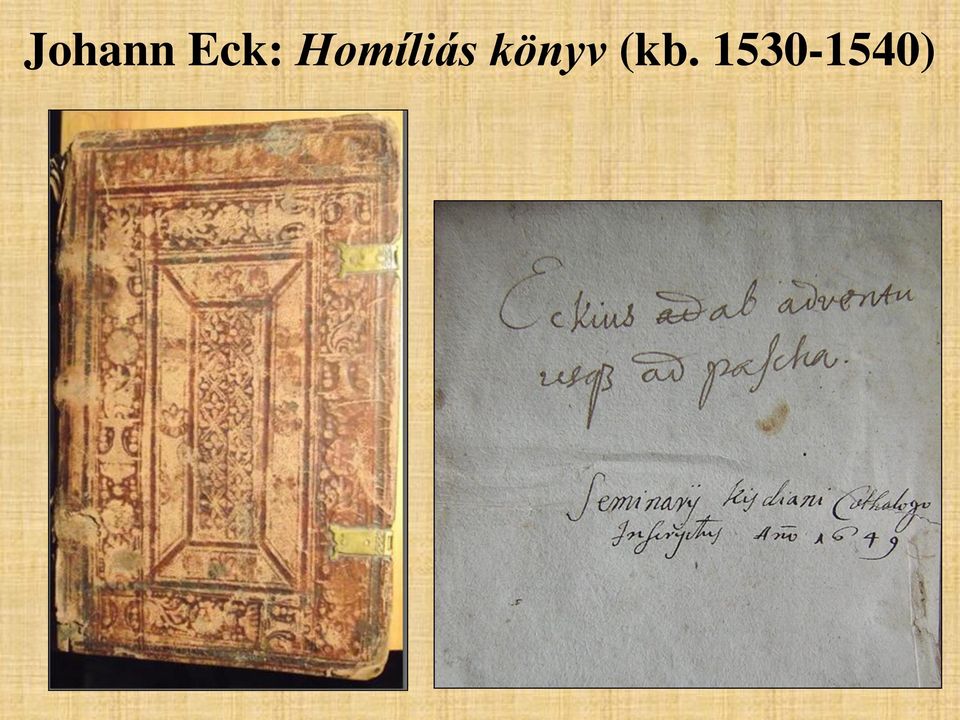 Johann Eck: Homíliás könyv (kb. 1530-1540)
Eckius ad ab adventu
usqȝ ad pascha.
Seminarij Kisdiani Cathalogo
Inscriptus Año 1649